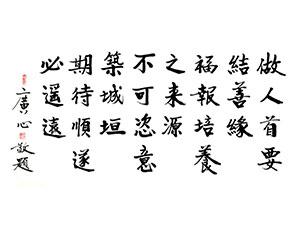 做人首要
結善緣
福報培養
之来源
不可恣意
築城垣
期待順遂
必遥遠
廣心敬題